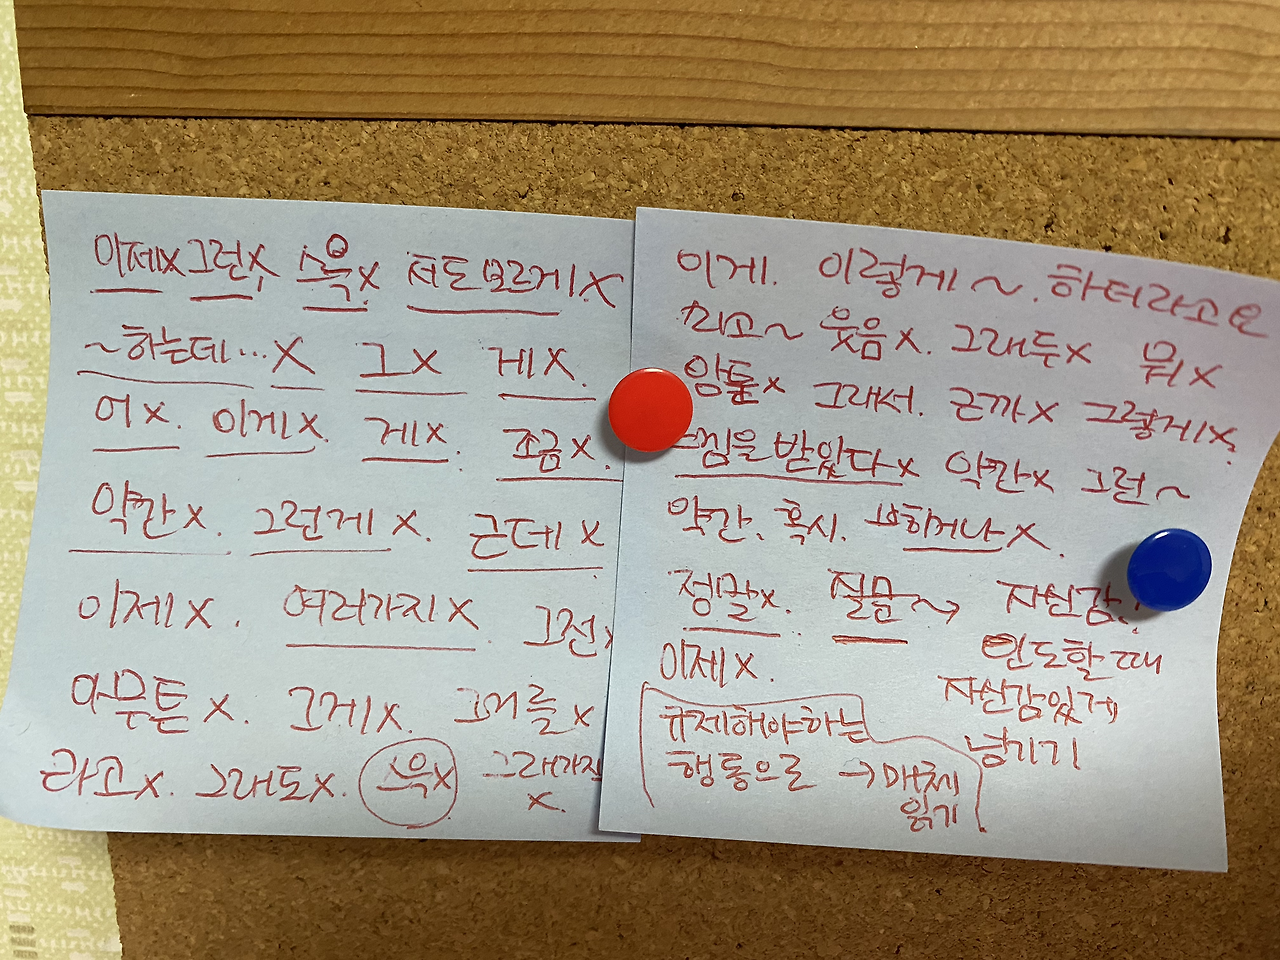 이제x 그런x, 스윽x, 저도모르게x
~하는데...X 그x 게x.
어x. 이게x. 게x. 조금x.
약간x. 그런게x. 근데x
이제x. 여러가지x 그전x
아무튼x. 그게x. 그거를x
라고x. 그래도x. 스윽x 그래가지
x.
이게. 이렇게~. 하더라고요
하고~ 웃음x. 그래두x 뭐x
암튼x 그래서. 근까x 그렇게x.
느낌을 받았다x 약간x 그런~
약간. 혹시. x.
정말x. 질문~> 자신감!!
이제x. 인도할때
자신감있게
넘기기
규제해야하는
행동으로 →매체
읽기